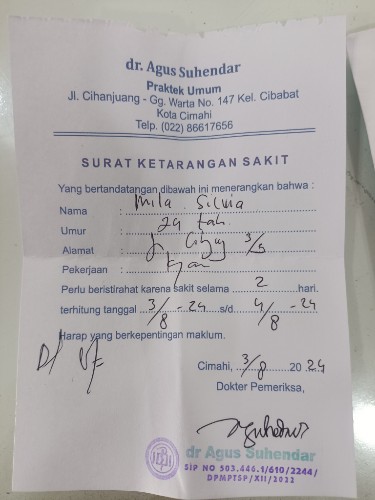 dr. Agus Suhendar
Praktek Umum
Jl. Cihanjuang - Gg. Warta No. 147 Kel. Cibabat
Kota Cimahi
Telp. (022) 86617656
SURAT KETARANGAN SAKIT
Yang bertandatangan dibawah ini menerangkan bahwa :
Nama : Mila Silvia
Umur : 29 tah
Alamat : 3/5
Pekerjaan :
Perlu beristirahat karena sakit selama 2 hari.
terhitung tanggal 3/8 - 24 s/d 4/8 - 24
Harap yang berkepentingan maklum.
Cimahi, 3/8 20 24
Dokter Pemeriksa,
dr Agus Suhendar
SIP NO 503.446.1/610/2244/
DPMPTSP/XII/2022